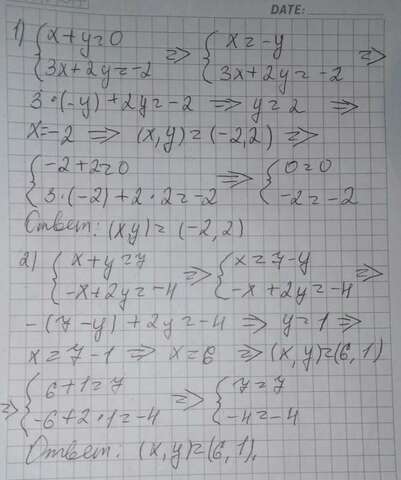 DATE:
1) { x+y=0 ⇒ { x=-y ⇒
{ 3x+2y=-2 { 3x+2y=-2
3·(-y)+2y=-2 ⇒ y=2 ⇒
x=-2 ⇒ (x,y)=(-2,2) ⇒
{ -2+2=0 ⇒ { 0=0
{ 3·(-2)+2·2=-2 { -2=-2
Ответ: (x,y)=(-2,2)
2) { x+y=7 ⇒ { x=7-y ⇒
{ -x+2y=-4 { -x+2y=-4
-(7-y)+2y=-4 ⇒ y=1 ⇒
x=7-1 ⇒ x=6 ⇒ (x,y)=(6,1)
⇒ { 6+1=7 ⇒ { 7=7
{ -6+2·1=-4 { -4=-4
Ответ: (x,y)=(6,1).